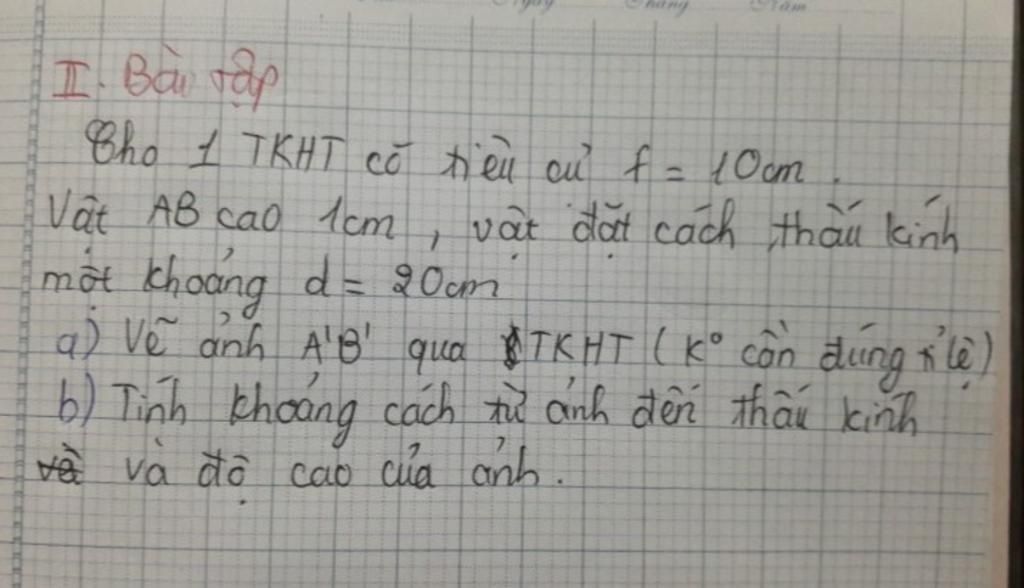 Ngày Tháng Năm
II. Bài tập
Cho 1 TKHT có tiêu cự f = 10cm.
Vật AB cao 1cm, vật đặt cách thấu kính
một khoảng d = 20cm
a) Vẽ ảnh A'B' qua TKHT (K° cần đúng tỉ lệ)
b) Tính khoảng cách từ ảnh đến thấu kính
và độ cao của ảnh.